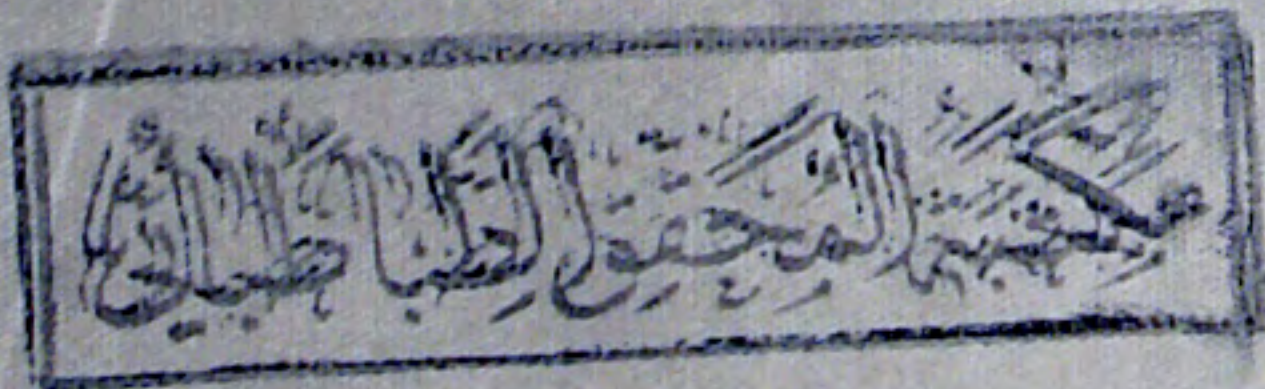 مكتبة المحقق الطباطبائي